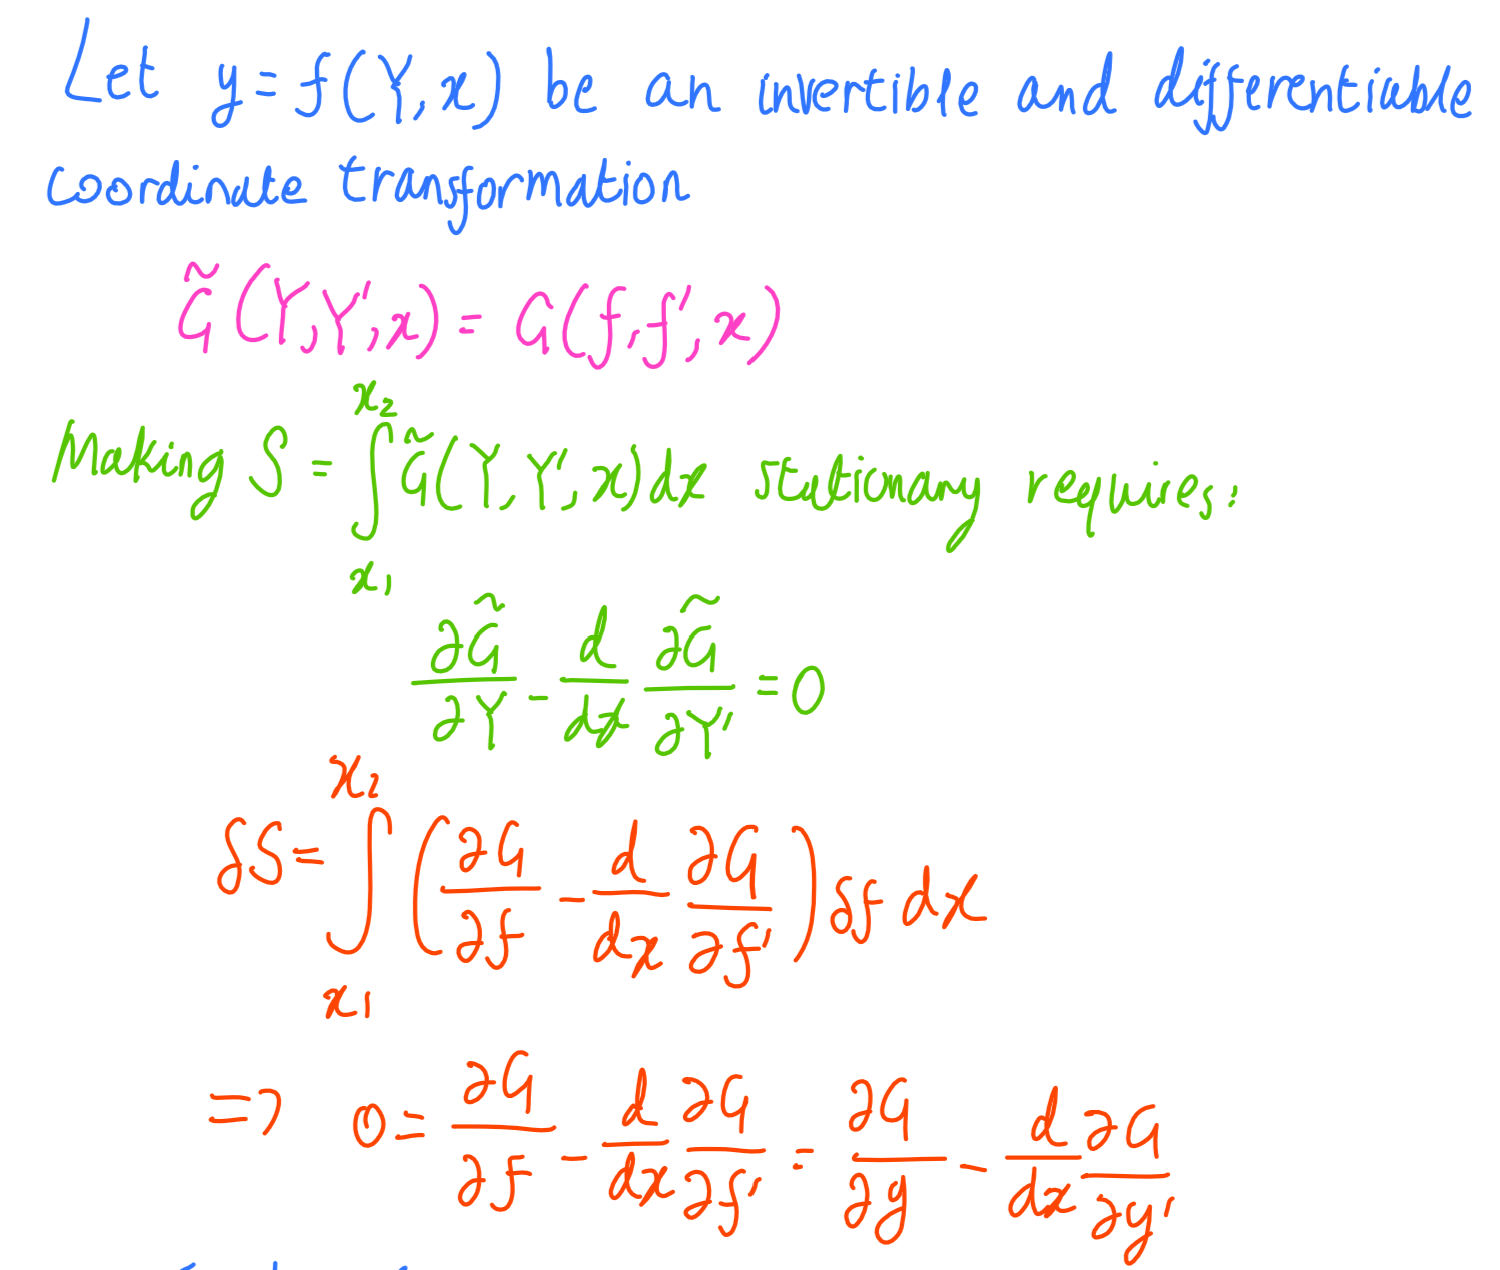 Let y = f(Y, x) be an invertible and differentiable
coordinate transformation
G̃(Y, Y', x) = G(f, f', x)
Making S = ∫_{x₁}^{x₂} G̃(Y, Y', x) dx stationary requires:
∂G̃/∂Y - d/dx ∂G̃/∂Y' = 0
δS = ∫_{x₁}^{x₂} (∂G/∂f - d/dx ∂G/∂f') δf dx
=> 0 = ∂G/∂f - d/dx ∂G/∂f' = ∂G/∂y - d/dx ∂G/∂y'